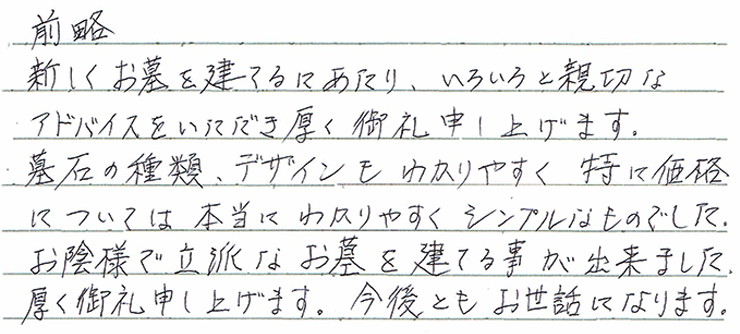 前略
新しくお墓を建てるにあたり、いろいろと親切な
アドバイスをいただき厚く御礼申し上げます。
墓石の種類、デザインもわかりやすく 特に価格
については 本当にわかりやすくシンプルなものでした。
お陰様で立派なお墓を建てる事が出来ました。
厚く御礼申し上げます。今後ともお世話になります。